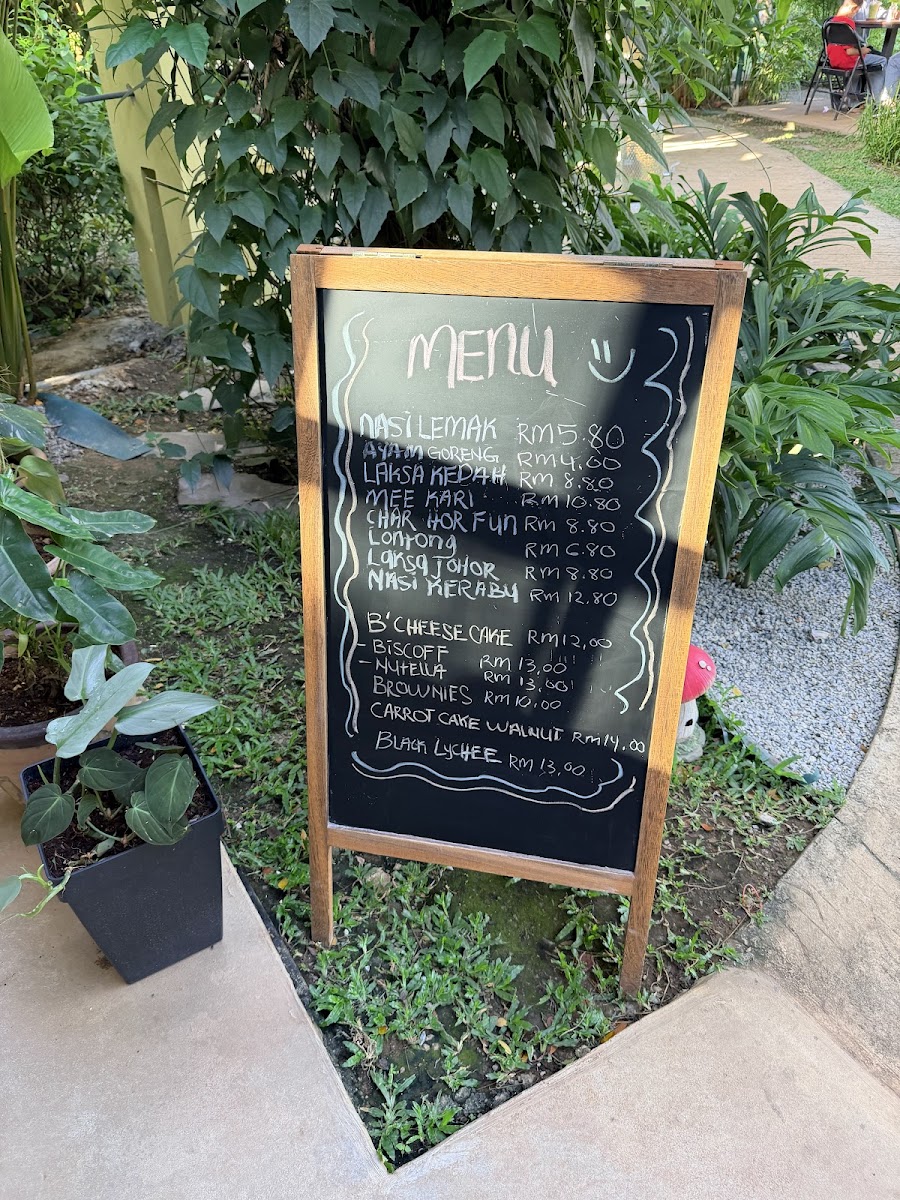 MENU
NASI LEMAK RM5.80
AYAM GORENG RM4.00
LAKSA KEDAH RM 8.80
MEE KARI RM10.80
CHAR HOR FUN RM 8.80
Lontong RM 6.80
LAKSA JOHOR RM 8.80
NASI KERABU RM 12.80
B'CHEESE CAKE RM12,00
- BISCOFF RM 13,00
- NUTELLA RM 13,00
BROWNIES RM 10.00
CARROT CAKE WALNUT RM14,00
BLACK LYCHEE RM 13,00